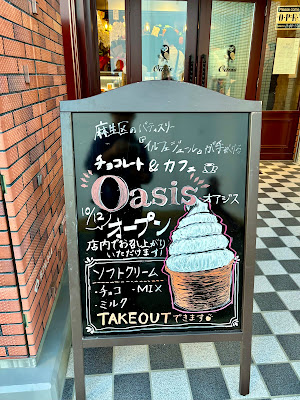 PLEASE COME IN
OPEN
Oasis
麻生区のパティスリー
『イルフェジュール』が手がける
チョコレート & カフェ
Oasis オアシス
10/12 オープン
店内でお召し上がり
いただけます!
ソフトクリーム
・チョコ ・MIX
・ミルク
TAKEOUT できます